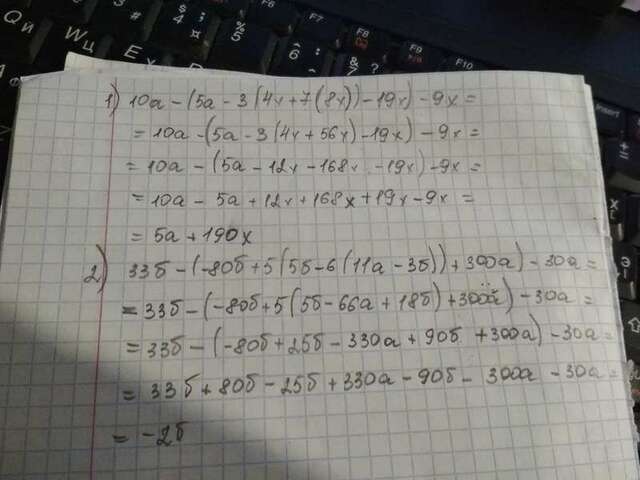 1) 10a - (5a - 3(4x + 7(8x)) - 19x) - 9x =
= 10a - (5a - 3(4x + 56x) - 19x) - 9x =
= 10a - (5a - 12x - 168x - 19x) - 9x =
= 10a - 5a + 12x + 168x + 19x - 9x =
= 5a + 190x
2) 33б - (-80б + 5(5б - 6(11a - 3б)) + 300a) - 30a =
= 33б - (-80б + 5(5б - 66a + 18б) + 300a) - 30a =
= 33б - (-80б + 25б - 330a + 90б + 300a) - 30a =
= 33б + 80б - 25б + 330a - 90б - 300a - 30a =
= -2б